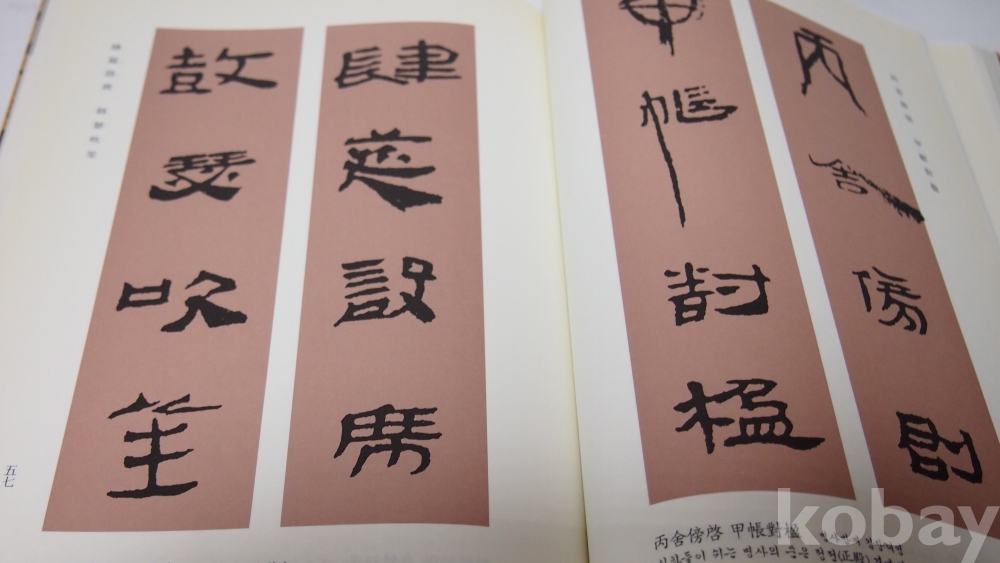 丙舍傍啓
甲帳對楹
丙舍傍啓 甲帳對楹
신하들이 쉬는 병사의 문은 정전(正殿)
肆筵設席
鼓瑟吹笙
肆筵設席 鼓瑟吹笙
五七
kobay